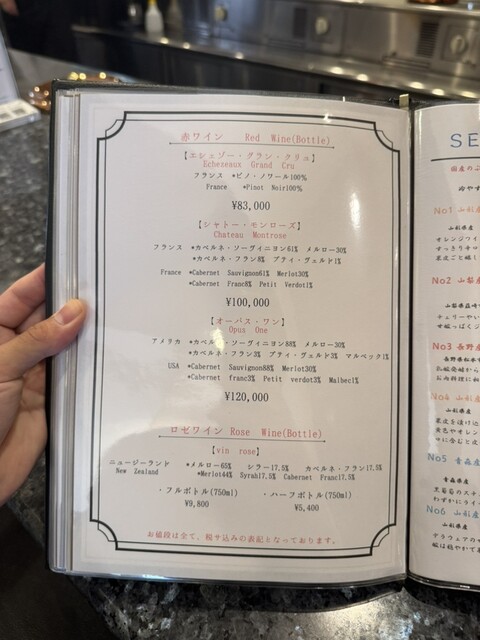 赤ワイン Red Wine(Bottle)
【エシェゾー・グラン・クリュ】
Echezeaux Grand Cru
フランス *ピノ・ノワール100%
France *Pinot Noir100%
¥83,000
【シャトー・モンローズ】
Chateau Montrose
フランス *カベルネ・ソーヴィニヨン61% メルロー30%
*カベルネ・フラン8% プティ・ヴェルド1%
France *Cabernet Sauvignon61% Merlot30%
*Cabernet Franc8% Petit Verdot1%
¥100,000
【オーパス・ワン】
Opus One
アメリカ *カベルネ・ソーヴィニヨン88% メルロー30%
*カベルネ・フラン3% プティ・ヴェルド3% マルベック1%
USA *Cabernet Sauvignon88% Merlot30%
*Cabernet franc3% Petit verdot3% Malbec1%
¥120,000
ロゼワイン Rose Wine(Bottle)
【vin rose】
ニュージーランド *メルロー65% シラー17.5% カベルネ・フラン17.5%
New Zealand *Merlot44% Syrah17.5% Cabernet Franc17.5%
・フルボトル(750ml) ・ハーフボトル(750ml)
¥9,800 ¥5,400
お値段は全て、税サ込みの表記となっております。
SE
国産のぶ
No1 山形
山形県産
オレンジワイ
No2 山梨
No3 長野
No4 山形
山形県産
No5 青森
青森県産
No6 山形
山形県産